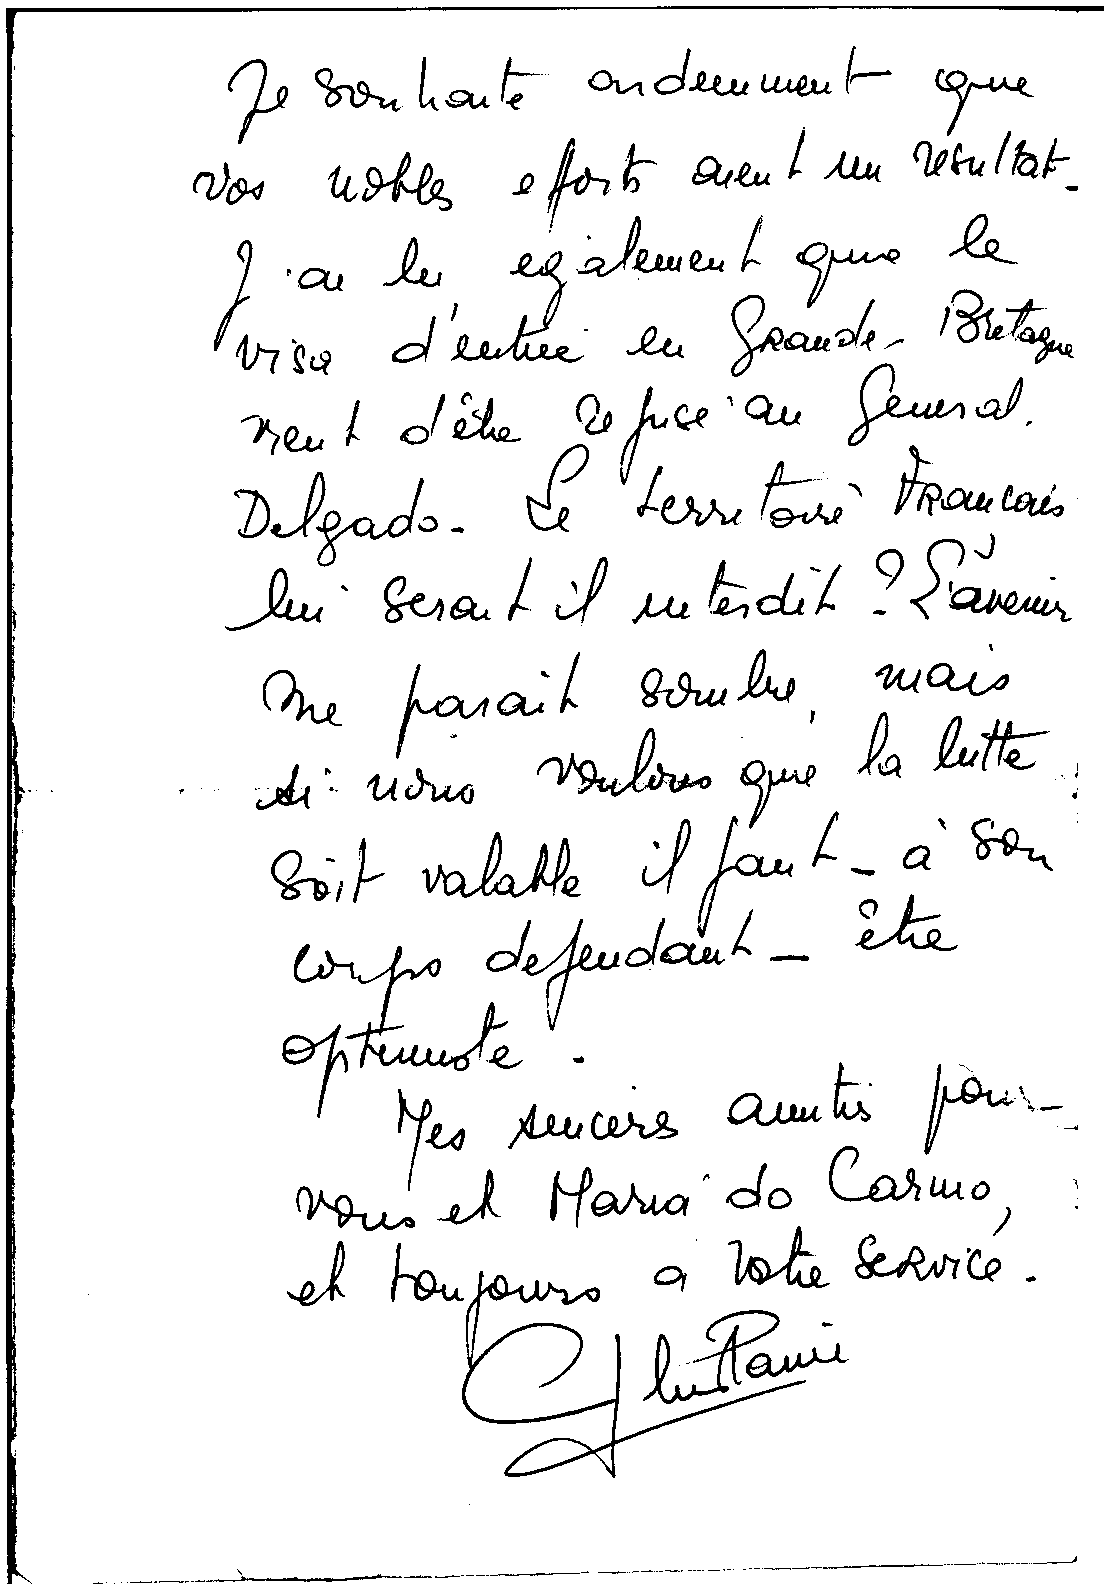 Je souhaite ardemment que
vos nobles efforts aient un résultat.
J'ai lu également que le
visa d'entrée en Grande-Bretagne
vient d'être refusé au General
Delgado. Le territoire Français
lui serait il interdit? L'avenir
me parait sombre, mais
si nous voulons que la lutte
soit valable il faut - à son
corps defendant - être
optimiste.
Mes sincères amitiés pour
vous et Maria do Carmo,
et toujours a votre service.